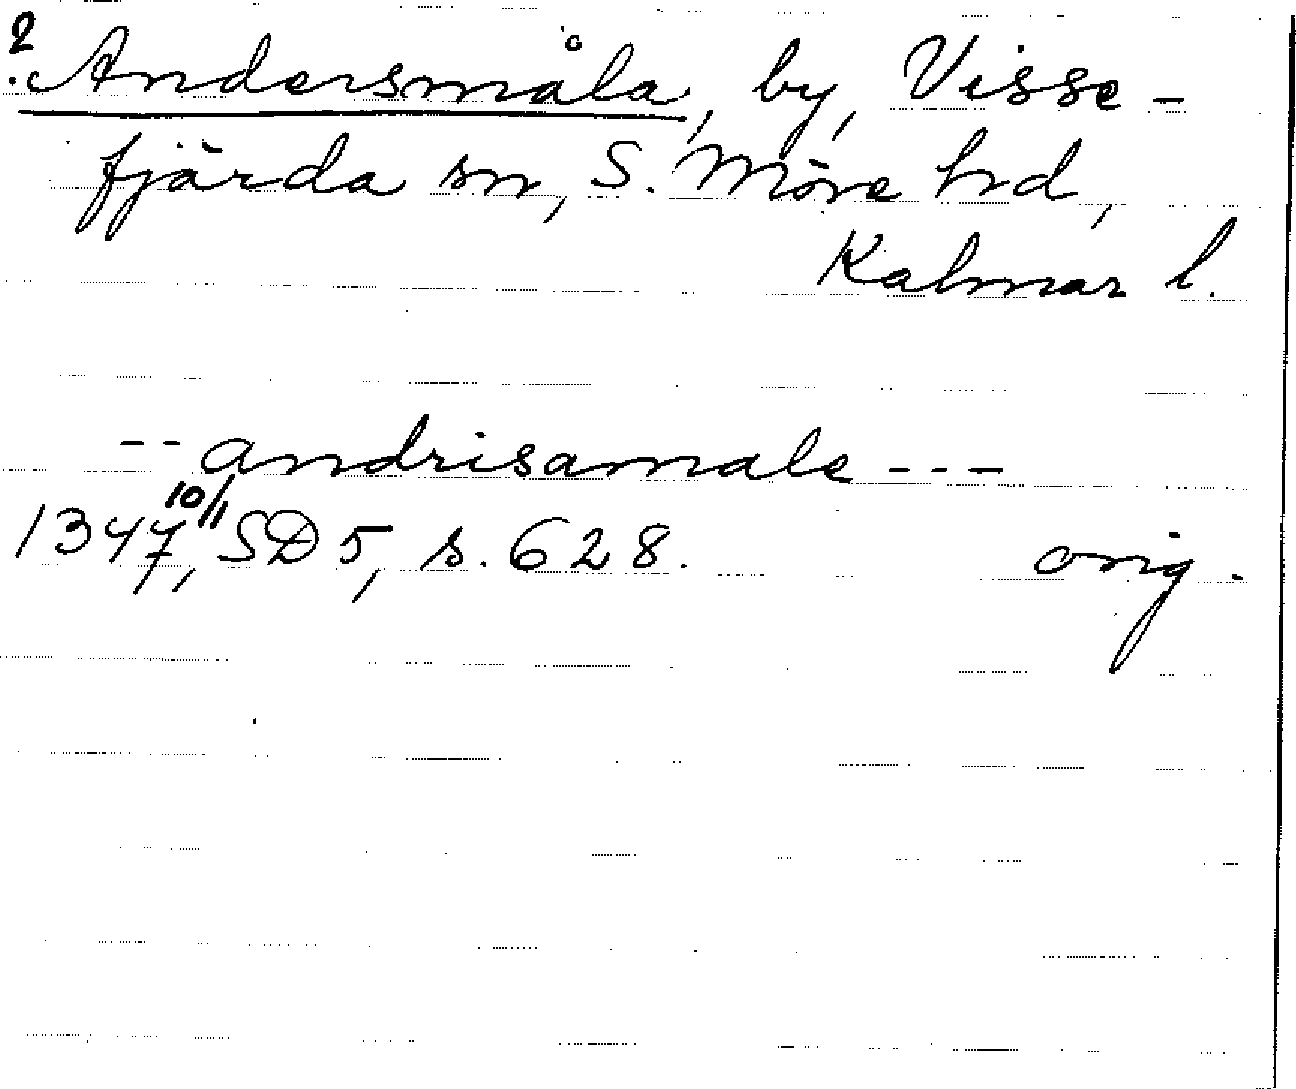 ? Andersmåla, by, Visse-
fjärda sn, S. Möre hd,
Kalmar l.
-- andrisamale ---
1347 10/11, SD 5, s. 628. orig.